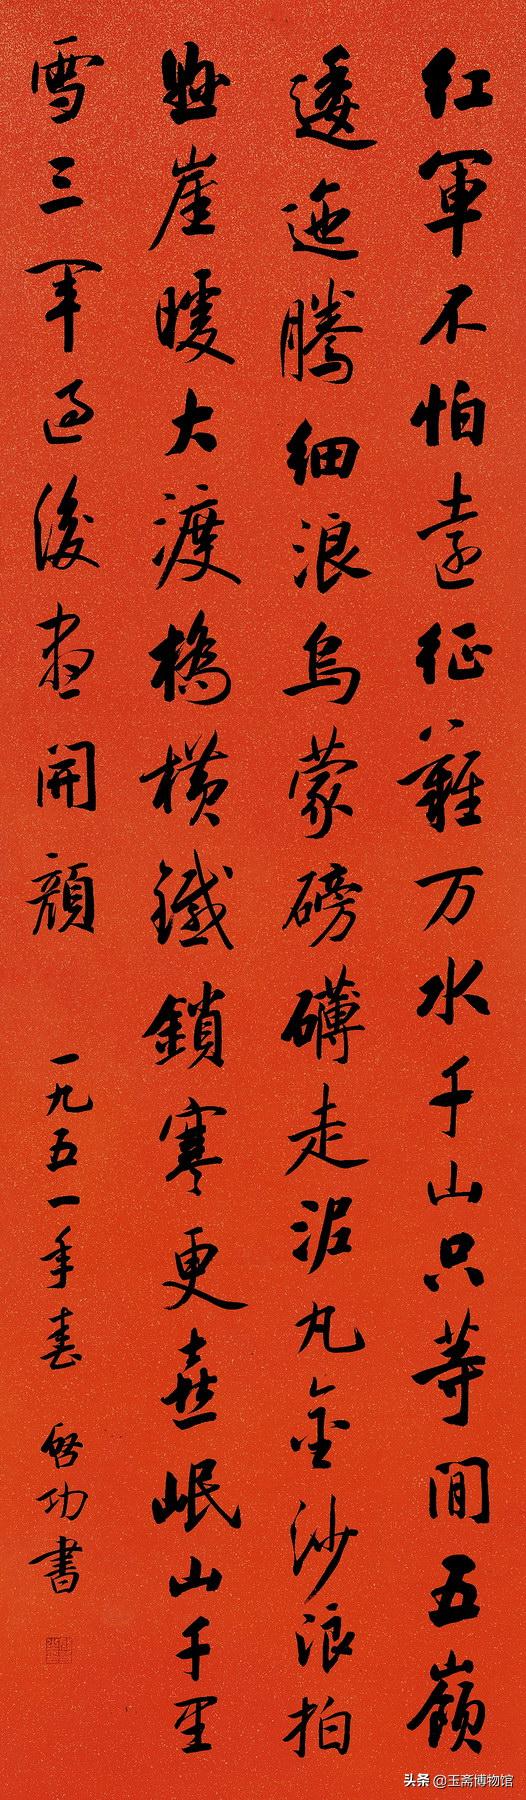 红軍不怕遠征難万水千山只等間五嶺
逶迤騰細浪烏蒙磅礴走泥丸金沙浪拍
懸崖暖大渡橋横鐵鎖寒更喜岷山千里
雪三军過後盡開顔
一九五一年春 啓功書
头条 @玉斋博物馆